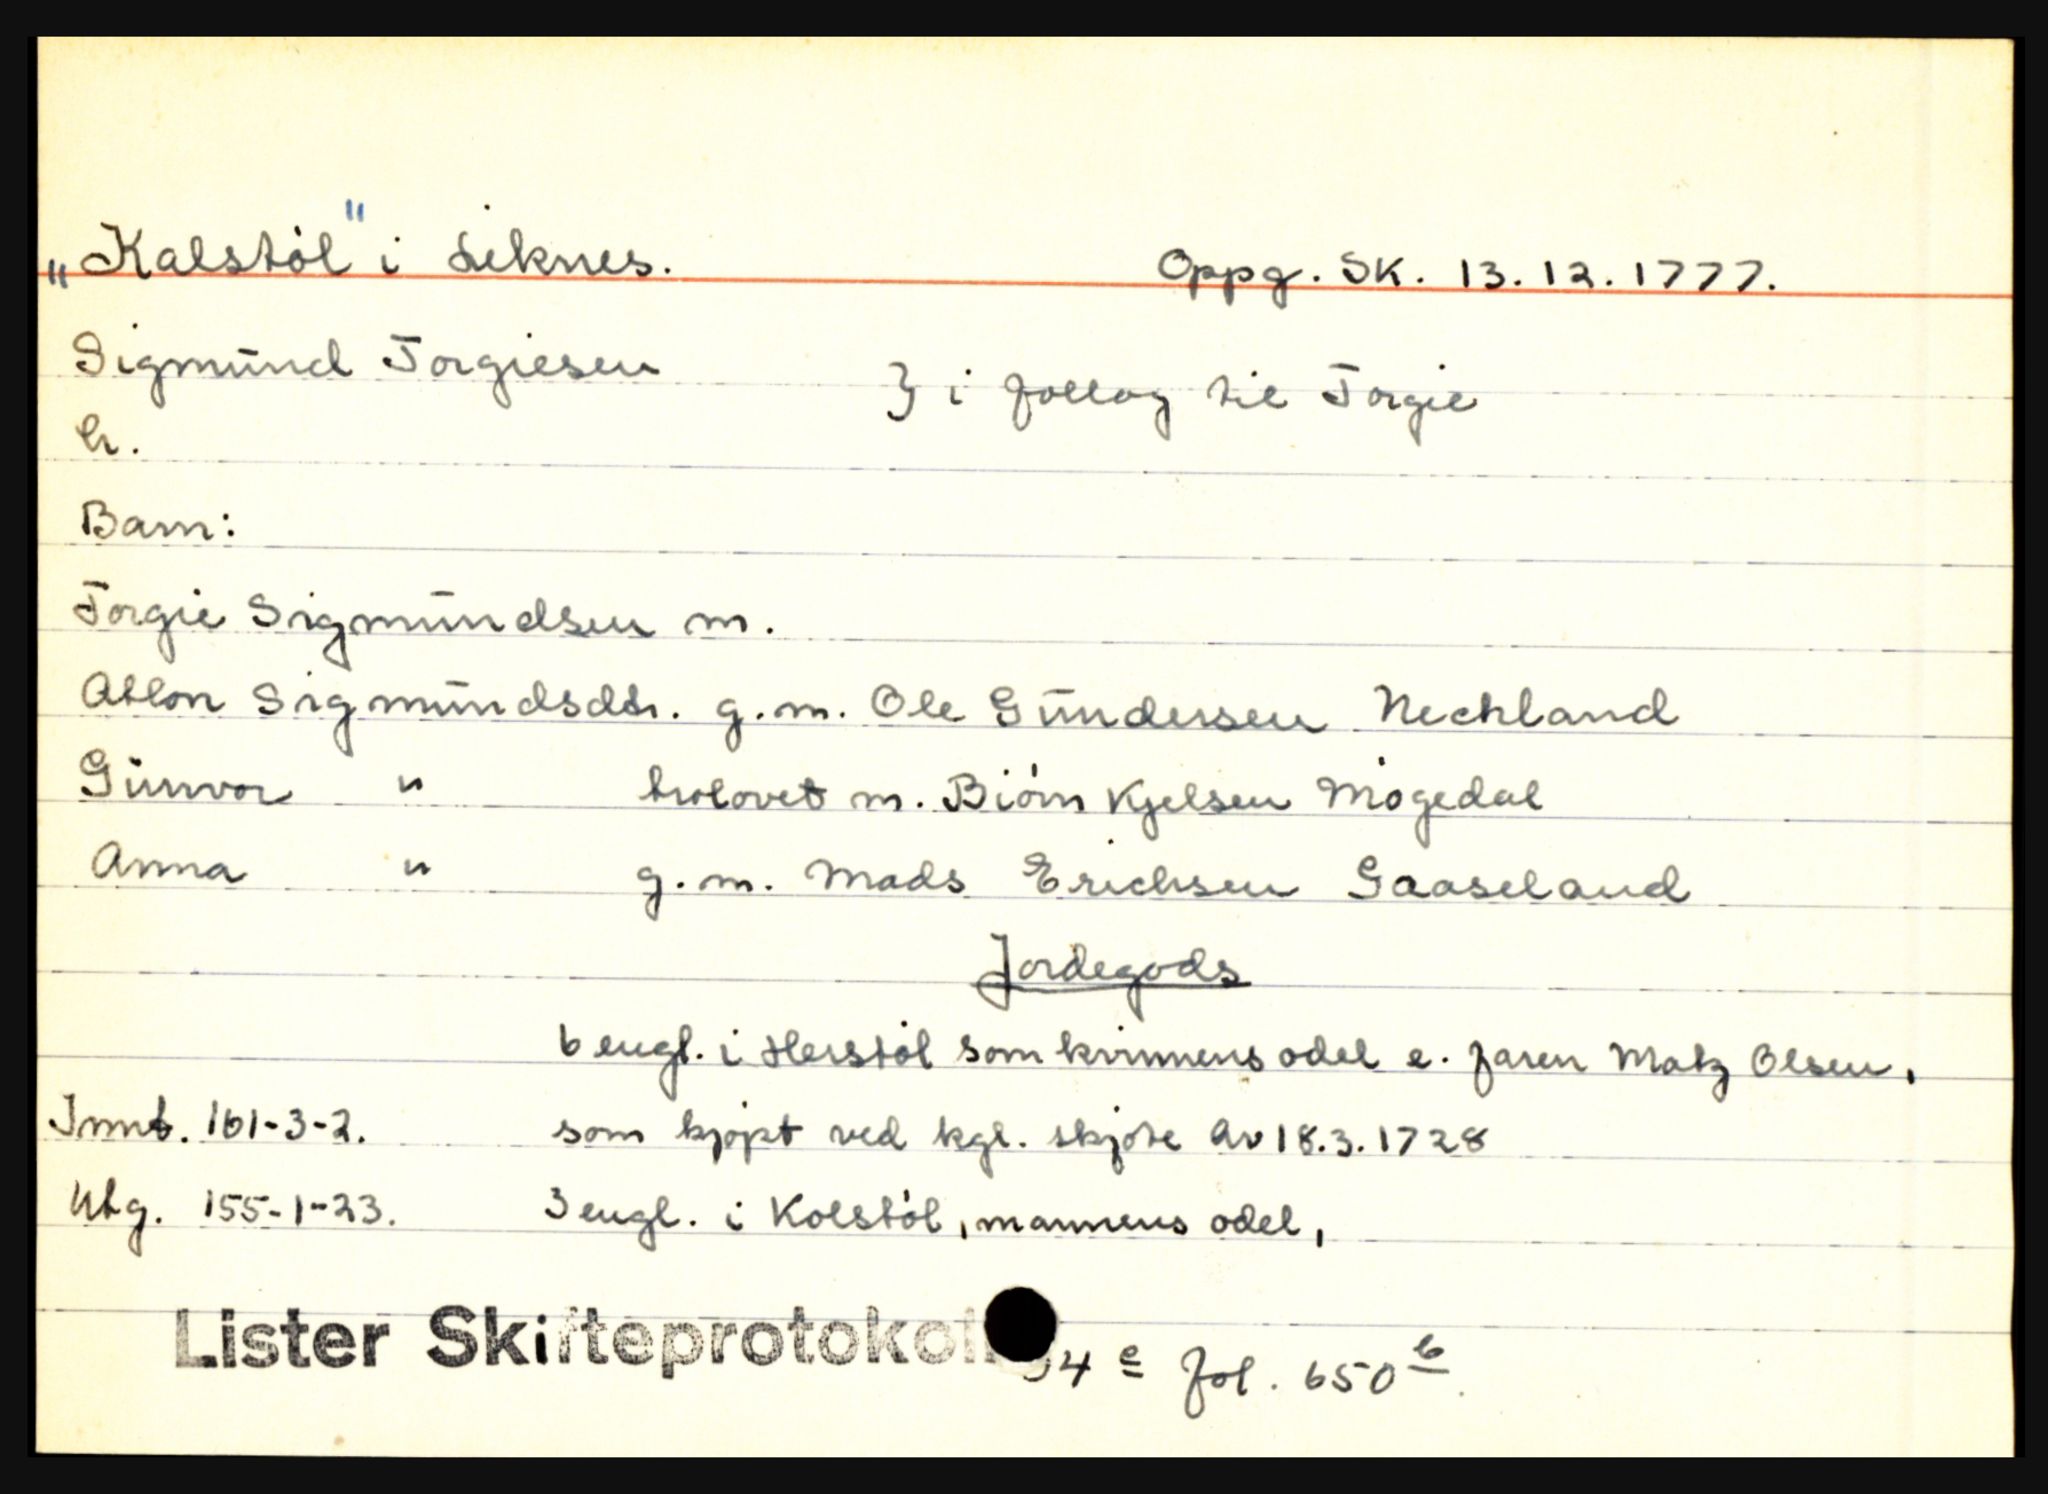 „Kalstöl" i Liknes. Oppg. SK. 13.12.1777.
Sigmund Torgiesen } i follog til Torgie
h.
Barn:
Torgie Sigmundsen m.
Atlon Sigmundsdtr. g.m. Ole Gundersen Neckland
Gunvor " trolovet m. Biörn Kjelsen Mögedal
Anna " g.m. Mads Erichsen Gaaseland
Jordegods
6 engl. i Herstöl som kvinnens odel e. faren Matz Olsen,
Innt. 161-3-2. som kjøpt ved kgl. skjøte av 18.3.1728
Utg. 155-1-23. 3 engl. i Kolstöl, mannens odel,
Lister Skifteprotokoll 4 e fol. 650 b.